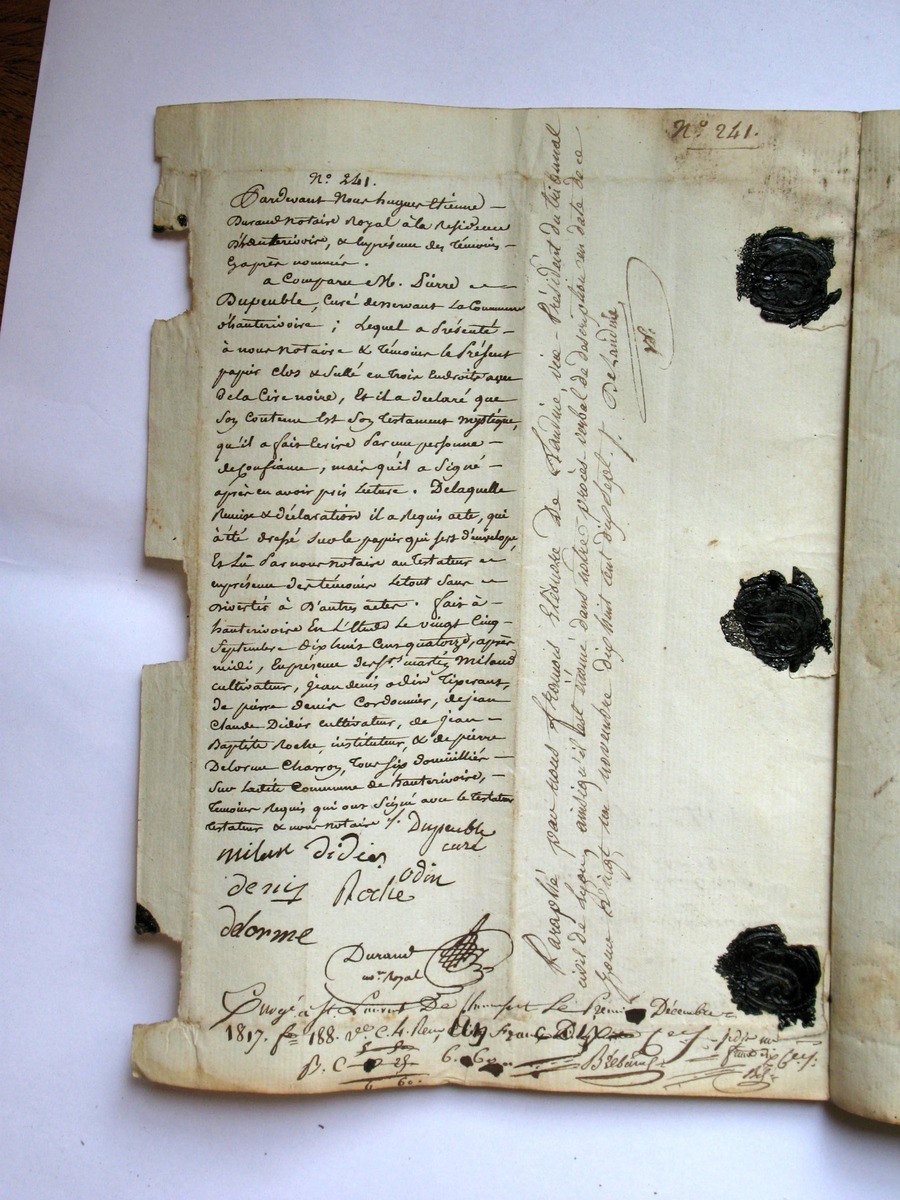 N.o 241.
N.o 241.
Pardevant Nous hugues Etienne
Durand notaire Royal à la Residence
D'hauterivoire, & En présence des témoins
Cy après nommés.
a Comparu M. Pierre
Dupeuble, Curé desservant La Commune
d'hauterivoire ; Lequel a Présenté
à nous notaire & témoins le Présent
papier clos & scellé en trois Endroits avec
de la Cire noire, Et il a déclaré que
son Contenu Est son testament mystique,
qu'il a fait Ecrire Par une personne
de Confiance, mais qu'il a Signé
après en avoir pris Lecture. De laquelle
Remise & déclaration il a Requis acte, qui
à été dressé sur le papier qui sert d'envelope,
Et Lû Par nous notaire au testateur
en présence des témoins le tout Sans
divertir à D'autres actes. fait à
hauterivoire En L'Etude Le vingt Cinq
Septembre dix huit Cent quatorze, après
midi, En présence des Srs martin Miland
cultivateur, jean denis odin
de pierre denis Cordonnier, de jean
Claude Didier cultivateur, de jean
Baptiste Roche, instituteur, & de pierre
Delorme Charron, tous six domicilliés
Sur la dite Commune de hauterivoire,
témoins Requis qui ont Signé avec le testator
testateur & nous notaire ./. Dupeuble
curé
milan didier
denis Roche odin
delorme
Durand
nre Royal
Paraphé par nous françois Eléonore De Landine, vice-Président du tribunal
civil de Lyon, ainsi qu'il est énoncé dans notre procès-verbal de description en date de ce
jour vingt un novembre dix huit cent dix sept. /. De Landine
St Laurent De Chamousset Le Premier Décembre
1817. fo 188.
6. 60